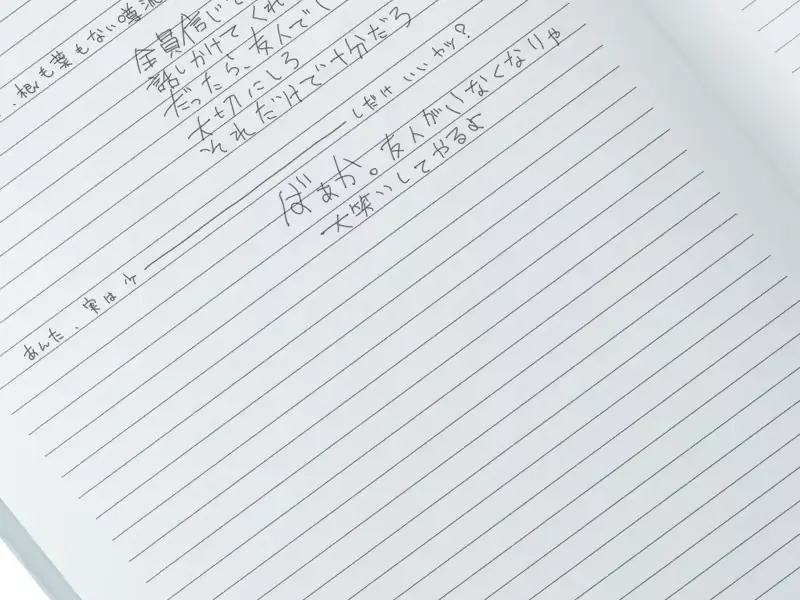 、根も葉もない噂
全員信じ
話しかけてくれ
だったら、友人で
大切にしろ
それだけで十分だろ
あんた、実は少――――しだけ いいヤツ?
ばぁか。友人がいなくなりゃ
大笑いしてやるよ